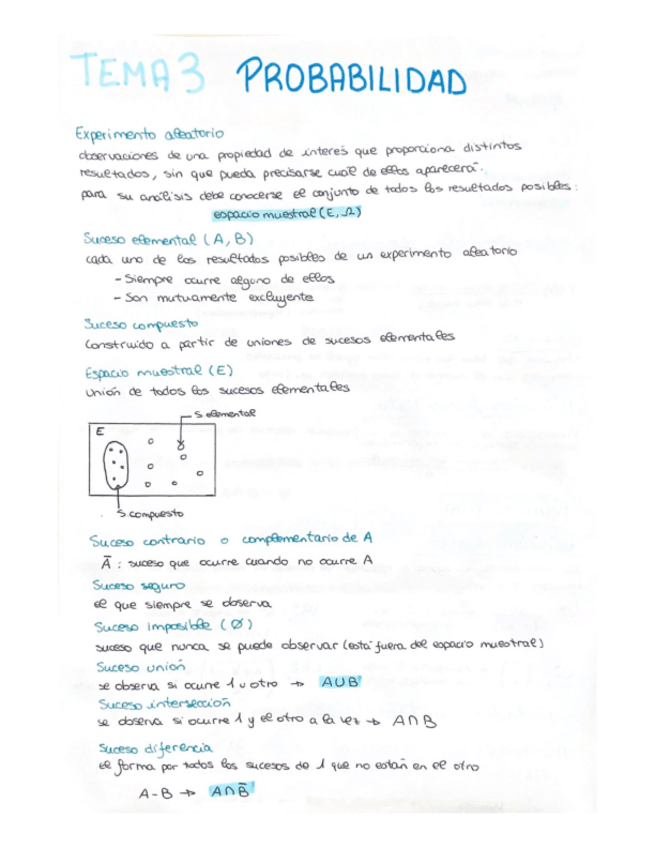 TEMA 3 PROBABILIDAD
Experimento aleatorio
observaciones de una propiedad de interés que proporciona distintos
resultados, sin que pueda precisarse cuál de ellos aparecerá.
para su análisis debe conocerse el conjunto de todos los resultados posibles:
espacio muestral (E, Ω)
Suceso elemental (A, B)
cada uno de los resultados posibles de un experimento aleatorio
- Siempre ocurre alguno de ellos
- Son mutuamente excluyente
Suceso compuesto
Construido a partir de uniones de sucesos elementales
Espacio muestral (E)
Unión de todos los sucesos elementales
S. elemental
E
S. compuesto
Suceso contrario o complementario de A
Ā : suceso que ocurre cuando no ocurre A
Suceso seguro
el que siempre se observa
Suceso imposible (Ø)
suceso que nunca se puede observar (está fuera del espacio muestral)
Suceso unión
se observa si ocurre 1 u otro → A∪B
Suceso intersección
se observa si ocurre 1 y el otro a la vez → A∩B
Suceso diferencia
el forma por todos los sucesos de 1 que no están en el otro
A-B → A∩B̄